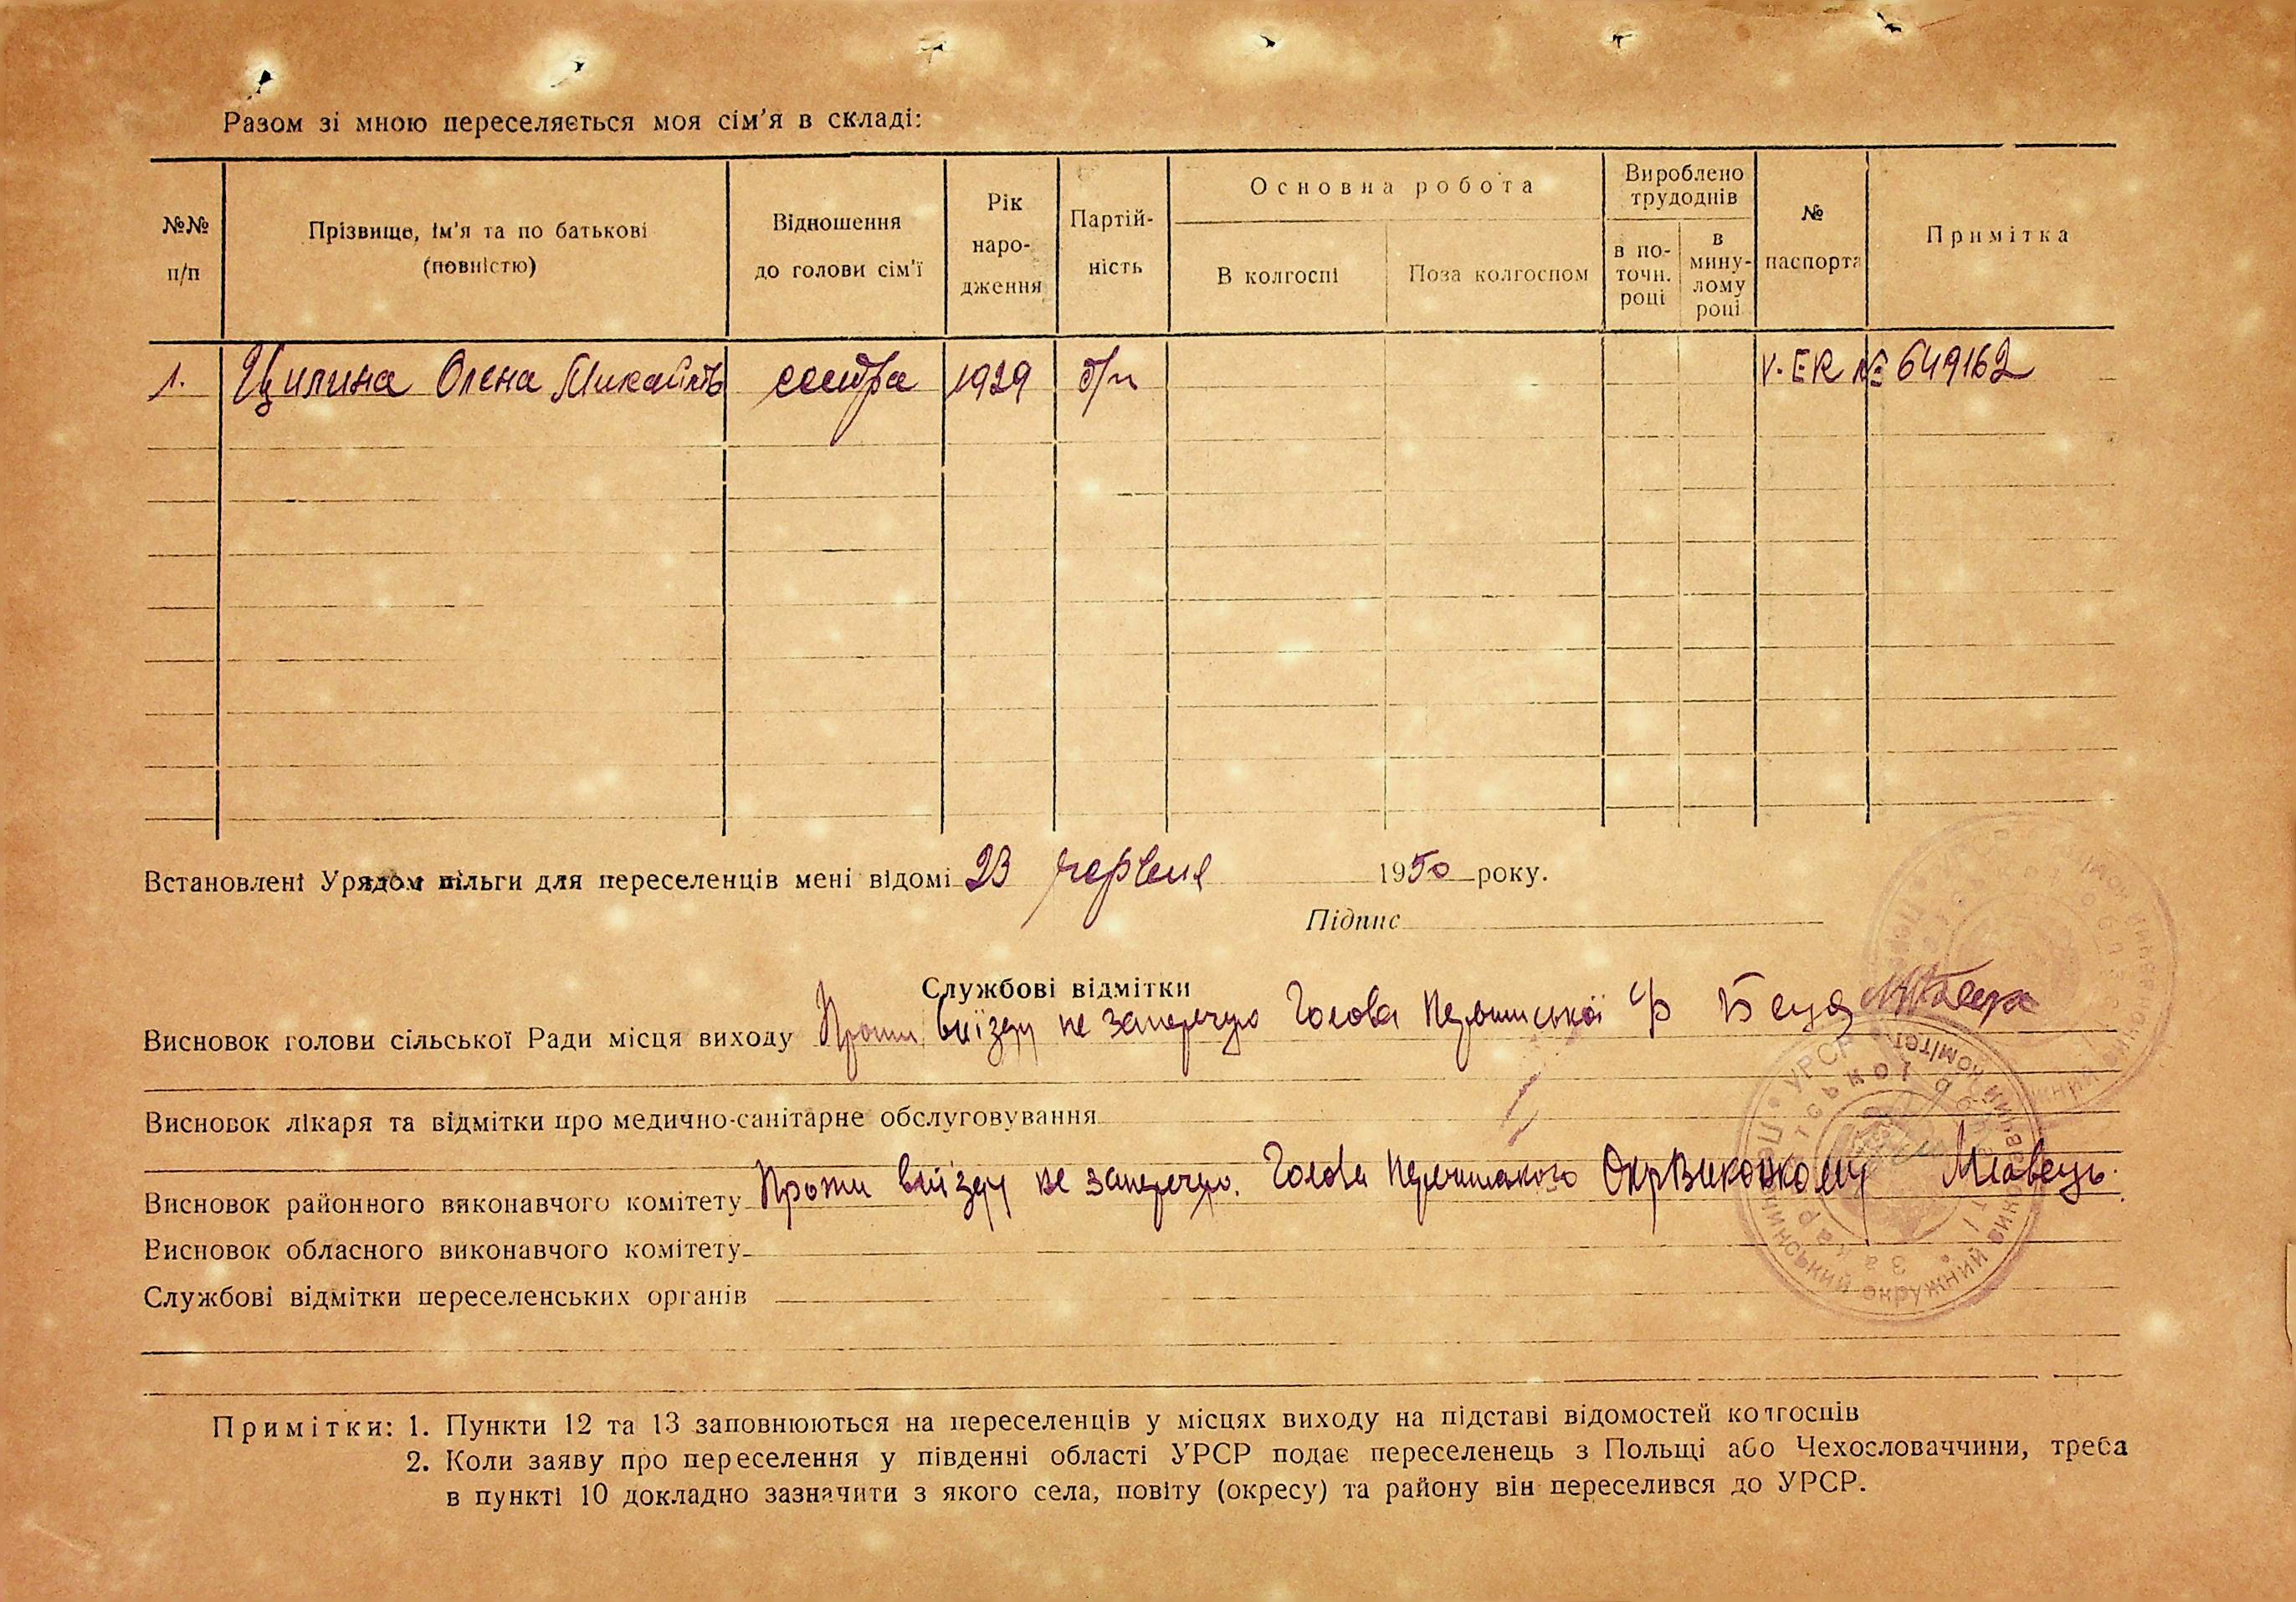 Разом зі мною переселяється моя сім'я в складі:
№№ п/п
Прізвище, ім'я та по батькові (повністю)
Відношення до голови сім'ї
Рік наро-дження
Партій-ність
Основна робота
В колгоспі
Поза колгоспом
Вироблено трудоднів
в по-точн. році
в мину-лому році
№ паспорта
Примітка
1. Цилина Олена Михайлів сестра 1929 б/п V-ER № 649162
Встановлені Урядом пільги для переселенців мені відомі 23 червня 1950 року.
Підпис
Службові відмітки
Висновок голови сільської Ради місця виходу Проти виїзду не заперечую Голова с/р
Висновок лікаря та відмітки про медично-санітарне обслуговування
Висновок районного виконавчого комітету Проти виїзду не заперечую. Голова Окрвиконкому
Висновок обласного виконавчого комітету
Службові відмітки переселенських органів
Примітки: 1. Пункти 12 та 13 заповнюються на переселенців у місцях виходу на підставі відомостей колгоспів
2. Коли заяву про переселення у південні області УРСР подає переселенець з Польщі або Чехословаччини, треба
в пункті 10 докладно зазначити з якого села, повіту (окресу) та району він переселився до УРСР.